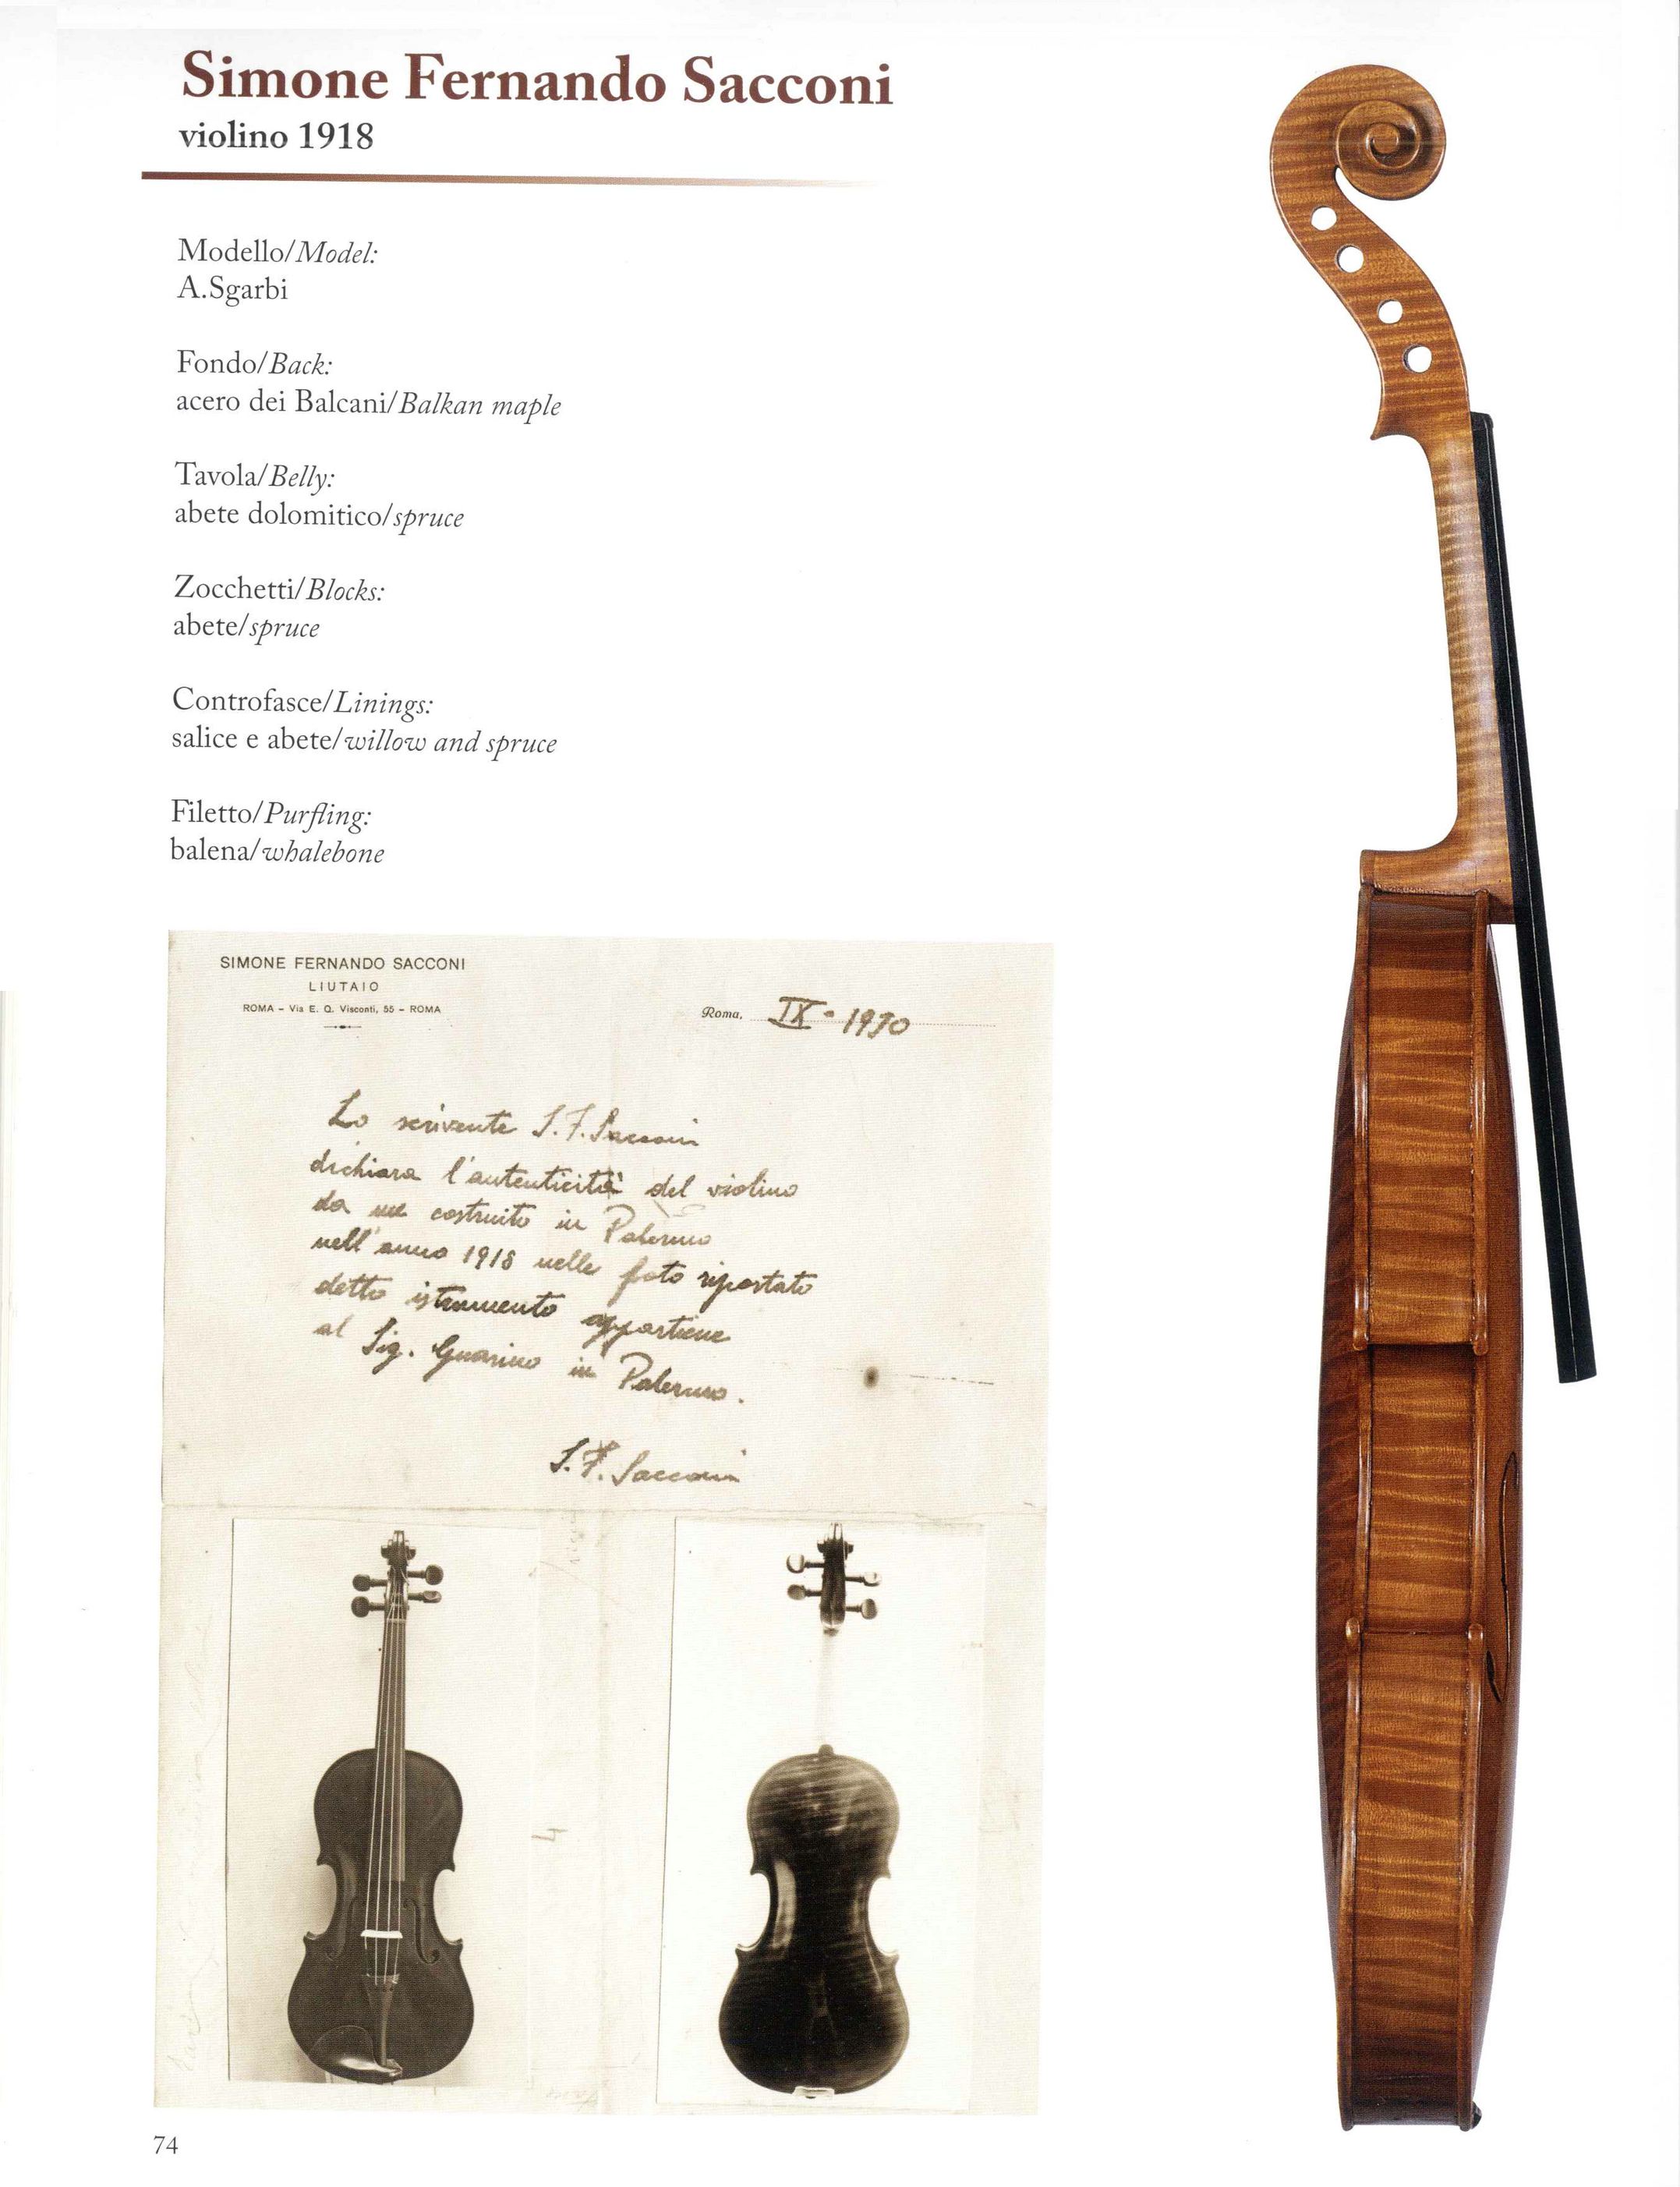 Simone Fernando Sacconi
violino 1918
Modello/Model:
A.Sgarbi
Fondo/Back:
acero dei Balcani/Balkan maple
Tavola/Belly:
abete dolomitico/spruce
Zocchetti/Blocks:
abete/spruce
Controfasce/Linings:
salice e abete/willow and spruce
Filetto/Purfling:
balena/whalebone
SIMONE FERNANDO SACCONI
LIUTAIO
ROMA - Via E. Q. Visconti, 55 - ROMA
Roma, IX - 1970
Lo scrivente S.F. Sacconi
dichiara l'autenticità del violino
da me costruito in Palermo
nell'anno 1918 nelle foto riportato
detto istrumento appartiene
al Sig. Guarino in Palermo.
S.F. Sacconi
4
74